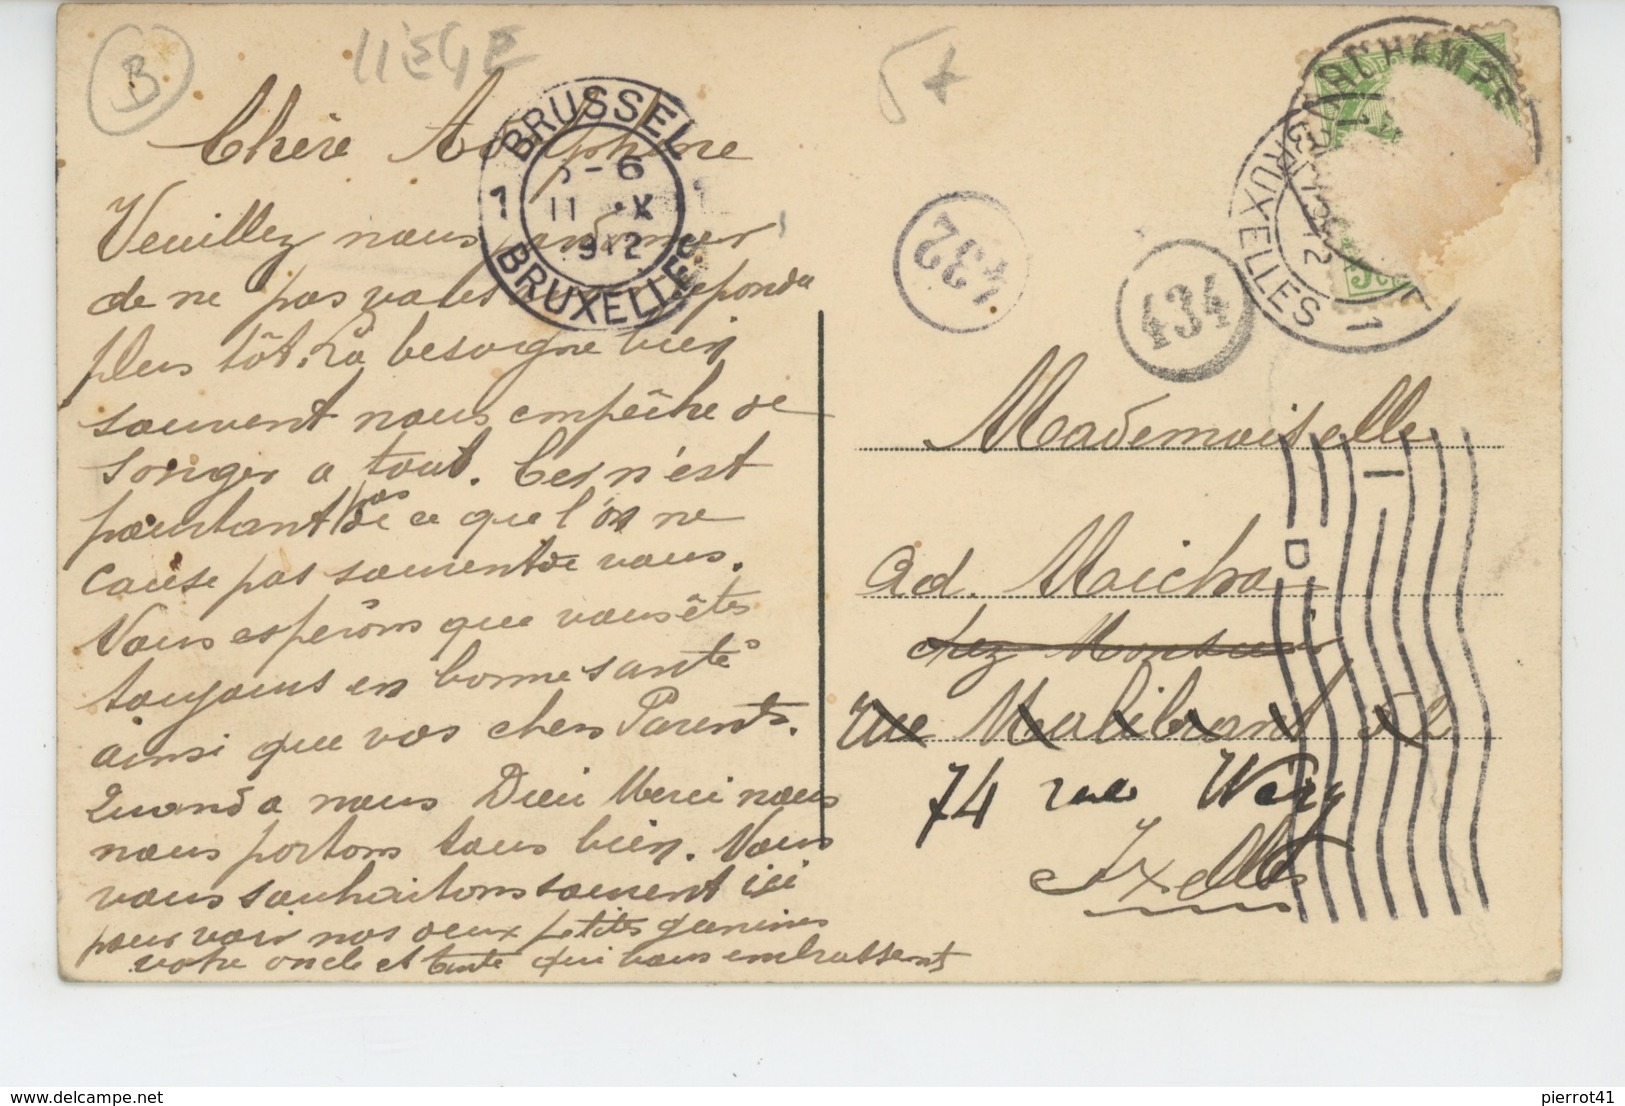 B
LIEGE
5+
BRUSSEL
BRUXELLES
1
-6
11 X
1912
Chère Adolphine
Veuillez nous pardonner
de ne pas vous répondu
plus tôt. La besogne bien
souvent nous empêche de
songer a tout. Ces n'est
pourtant pas de ce que l'on ne
cause pas souvent de vous.
Nous espérons que vous êtes
toujours en bonne santé
ainsi que vos chers Parents.
Quand a nous Dieu Merci nous
nous portons tous bien. Nous
vous souhaitons souvent ici
pour voir nos deux petites gamines
votre oncle et tante qui vous embrassent
432
434
LONGCHAMPS
BRUXELLES
1
Mademoiselle
Ad. Maicha
chez Monsieur
rue Malibrand 52
74 rue Wéry
Ixelles
D
pierrot41